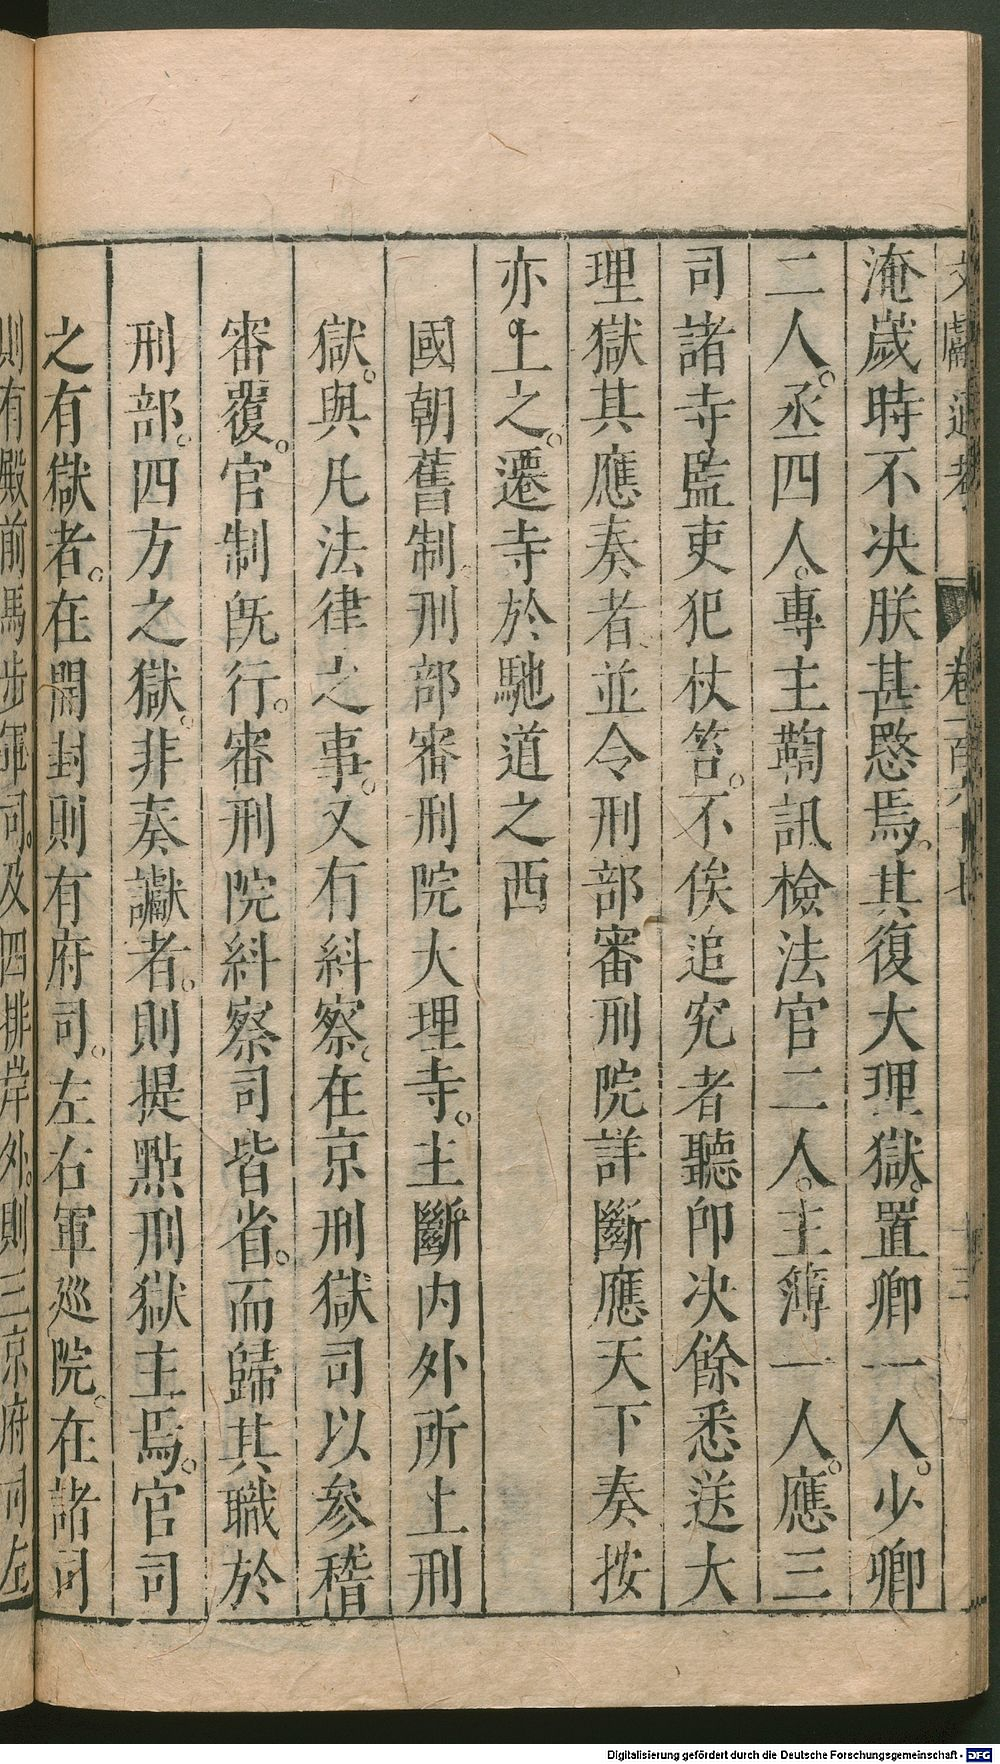 文獻通考 卷一百六十七 十三
淹歲時不決朕甚愍焉。其復大理獄。置卿一人。少卿
二人。丞四人。專主鞫訊檢法官二人。主簿一人。應三
司諸寺監吏犯杖笞。不俟追究者聽卽决餘悉送大
理獄其應奏者。並令刑部審刑院詳斷應天下奏按
亦上之。遷寺於馳道之西
國朝舊制。刑部審刑院大理寺。主斷内外所上刑
獄。與凡法律之事。又有糾察。在京刑獄司以參稽
審覆。官制旣行。審刑院糾察司皆省。而歸其職於
刑部。四方之獄。非奏讞者。則提點刑獄主焉。官司
之有獄者。在開封則有府司。左右軍巡院。在諸司
則有殿前馬步軍司。及四排岸外。則三京府司左
Digitalisierung gefördert durch die Deutsche Forschungsgemeinschaft - DFG